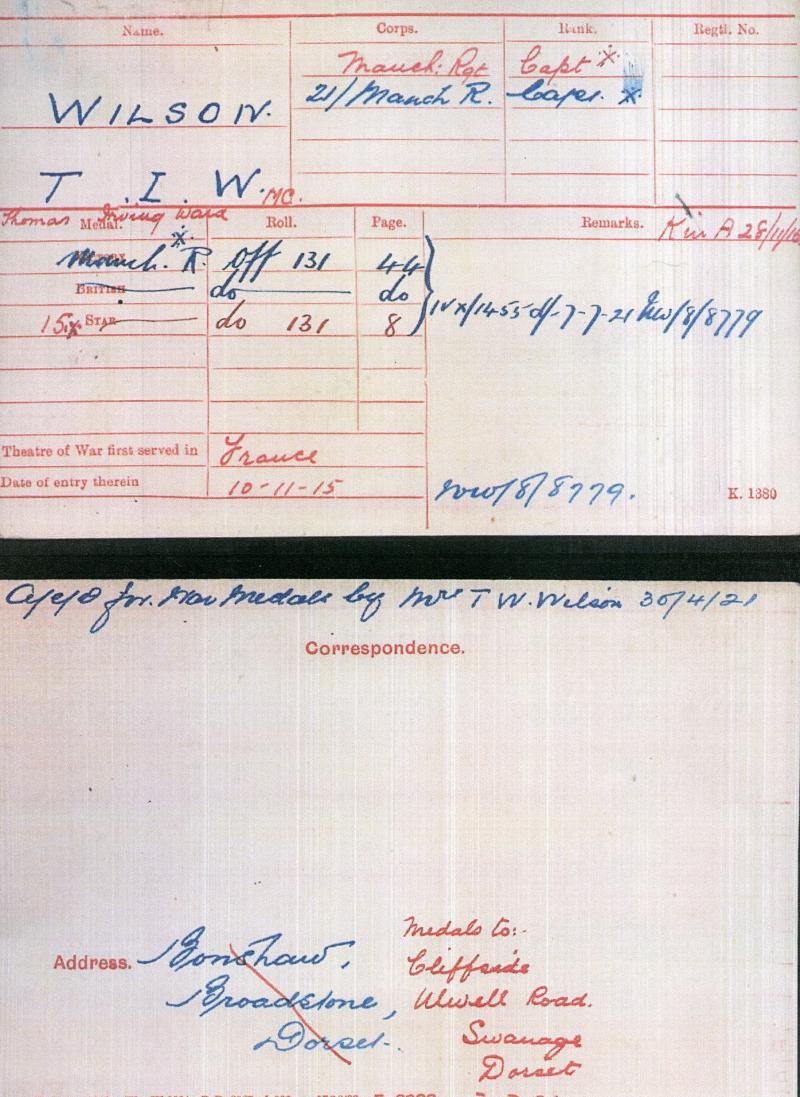 Name. Corps. Rank. Regtl. No.
Manch: Rgt Capt
WILSON. 21/Manch R. Capt. x
T. I. W. MC.
Thomas Irving Ward
Medal. Roll. Page. Remarks. K in A 28/11/16
Manch. R. Off 131 44
British do do
15 Star do 131 8
IV X/1455 d/-7-7-21 NW/8/8779
Theatre of War first served in France
Date of entry therein 10-11-15
NW/8/8779. K. 1380
for War Medals by Mrs T W. Wilson 30/4/21
Correspondence.
Medals to:-
Address. Bonshaw, Cliffside
Broadstone, Ulwell Road.
Dorset. Swanage
Dorset